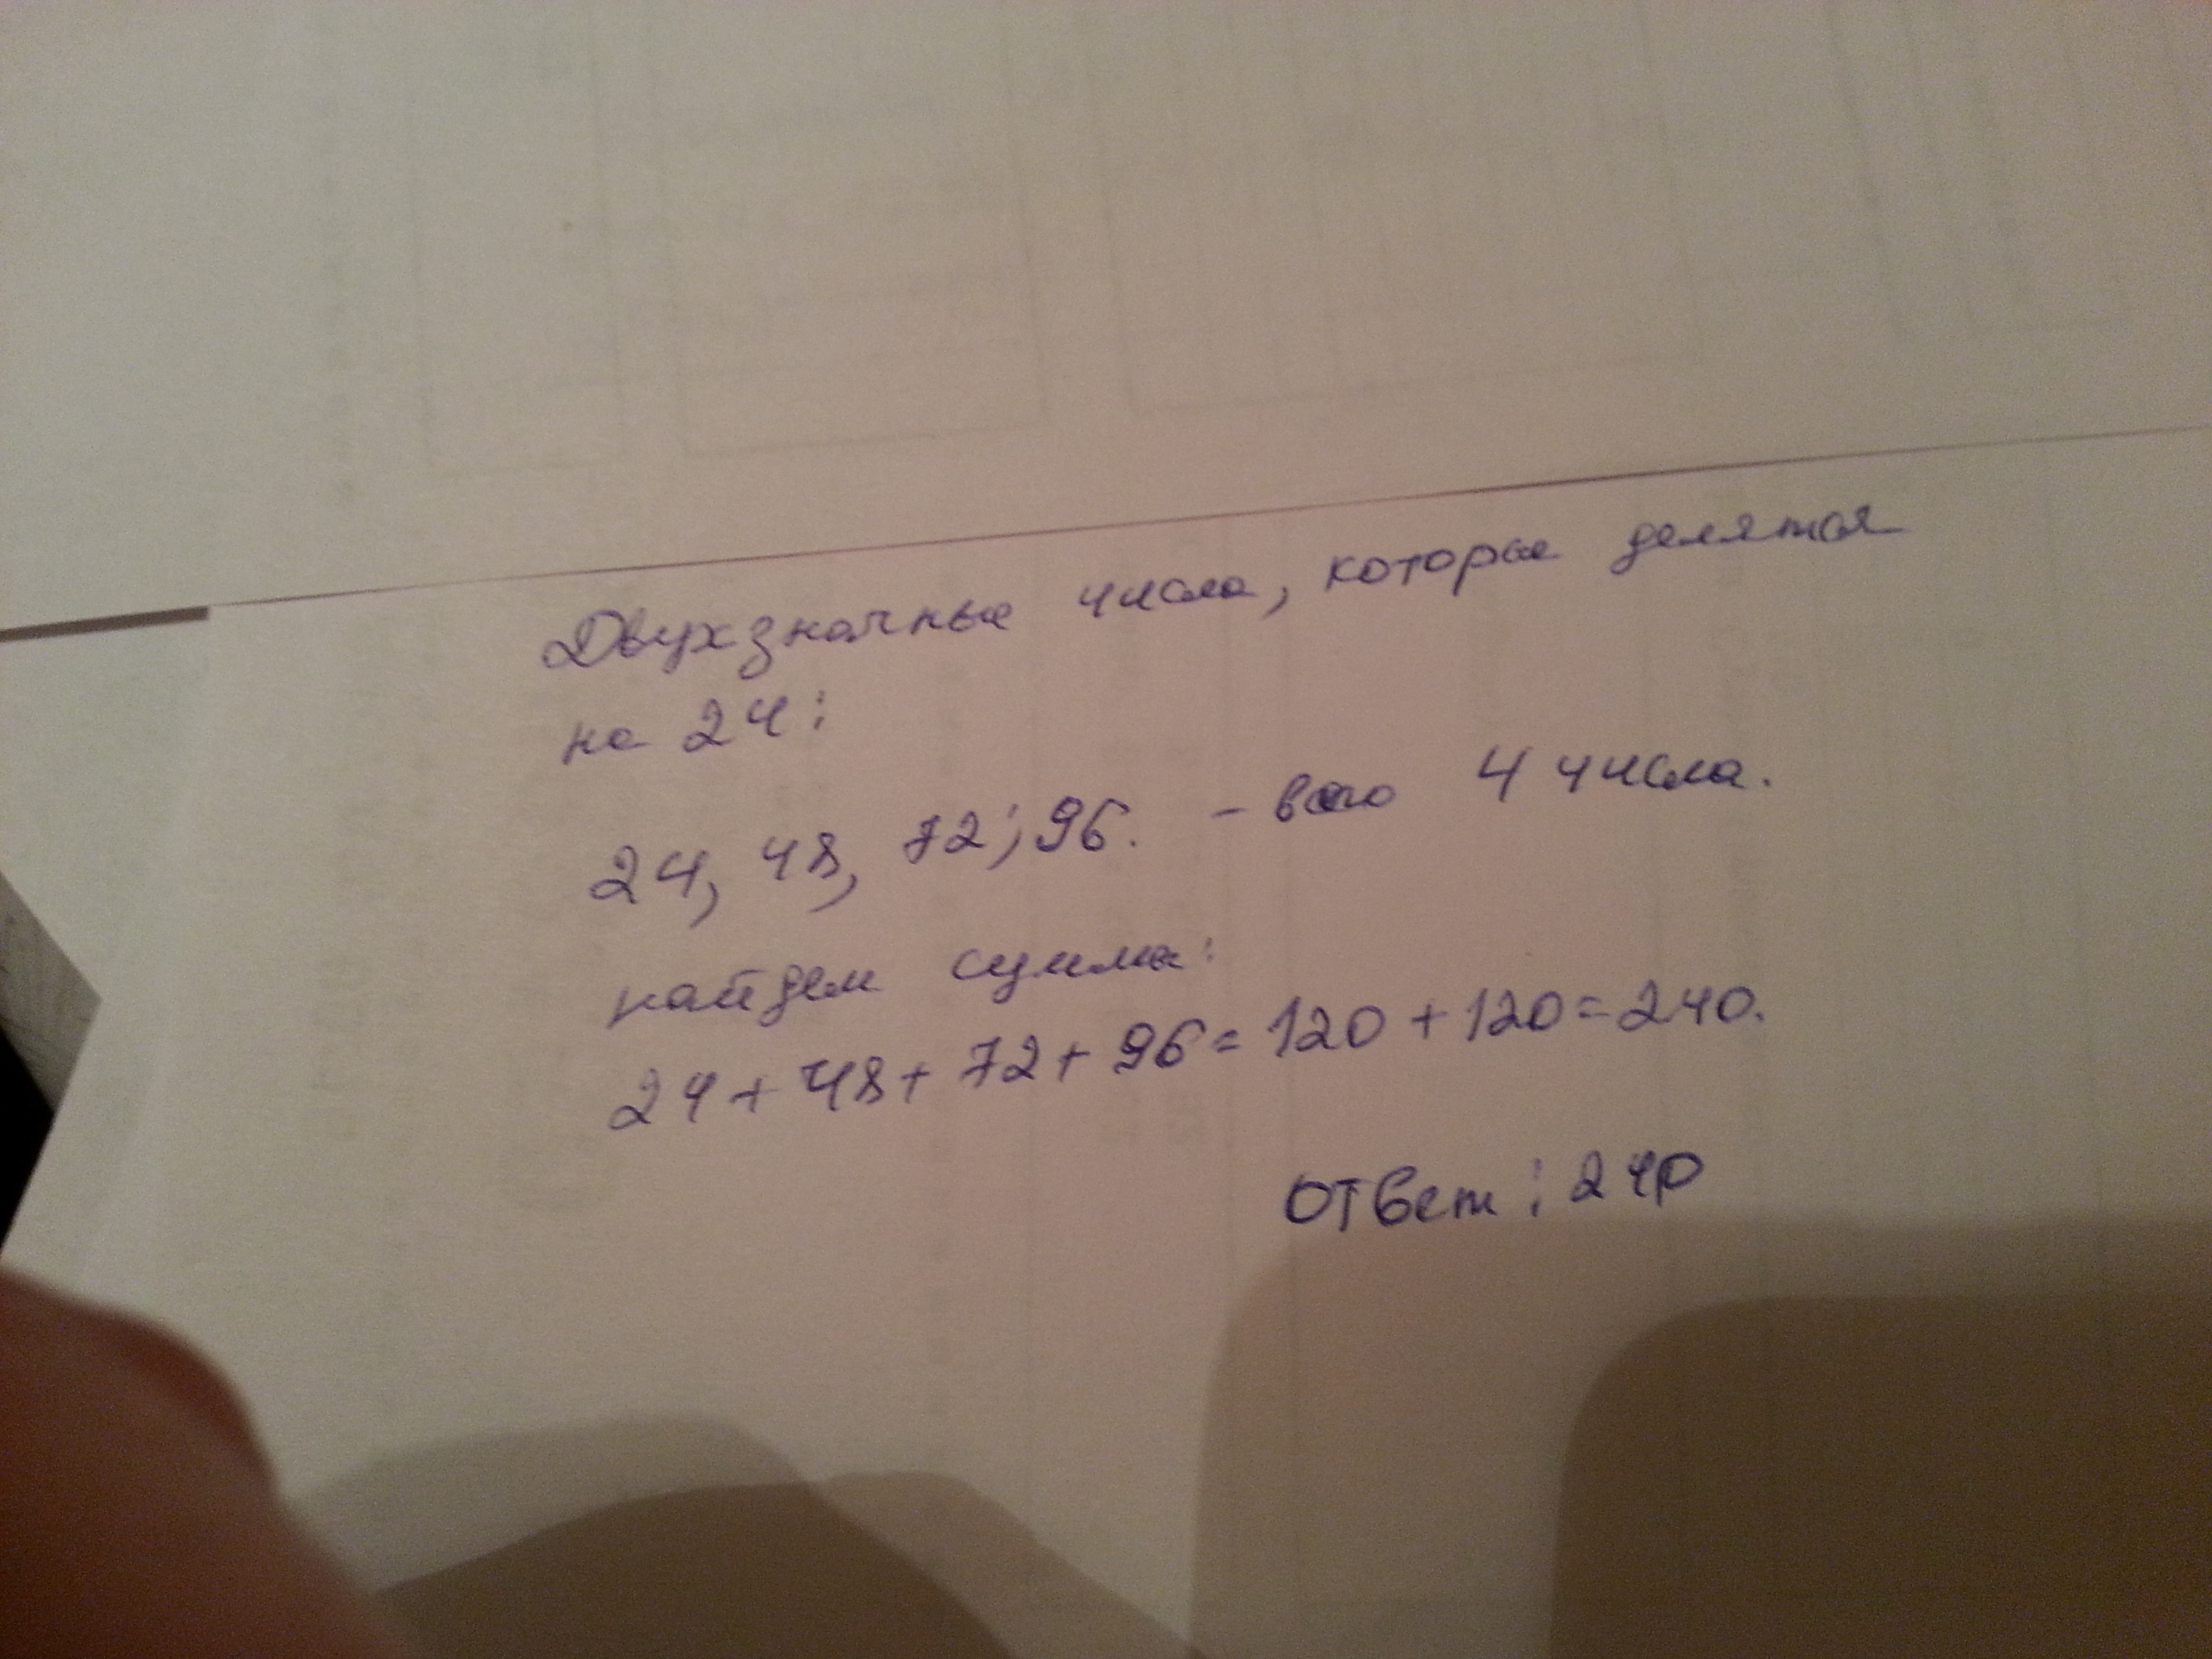 Двухзначные числа, которые делятся
на 24:
24, 48, 72; 96. - всего 4 числа.
найдем сумму:
24 + 48 + 72 + 96 = 120 + 120 = 240.
Ответ: 240